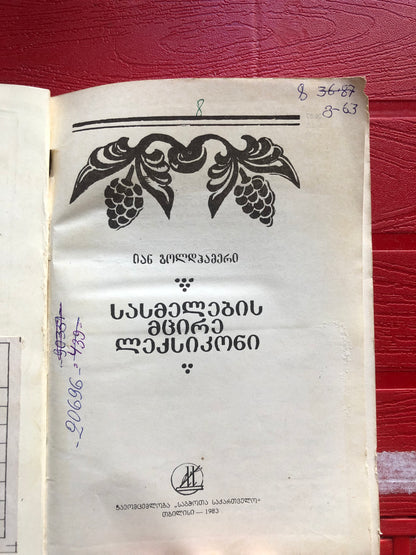 8
8 36-87
3-63
იან გოლდჰამერი
სასმელების
მცირე
ლექსიკონი
-20696=439-
გამომცემლობა „საბჭოთა საქართველო“
თბილისი — 1983